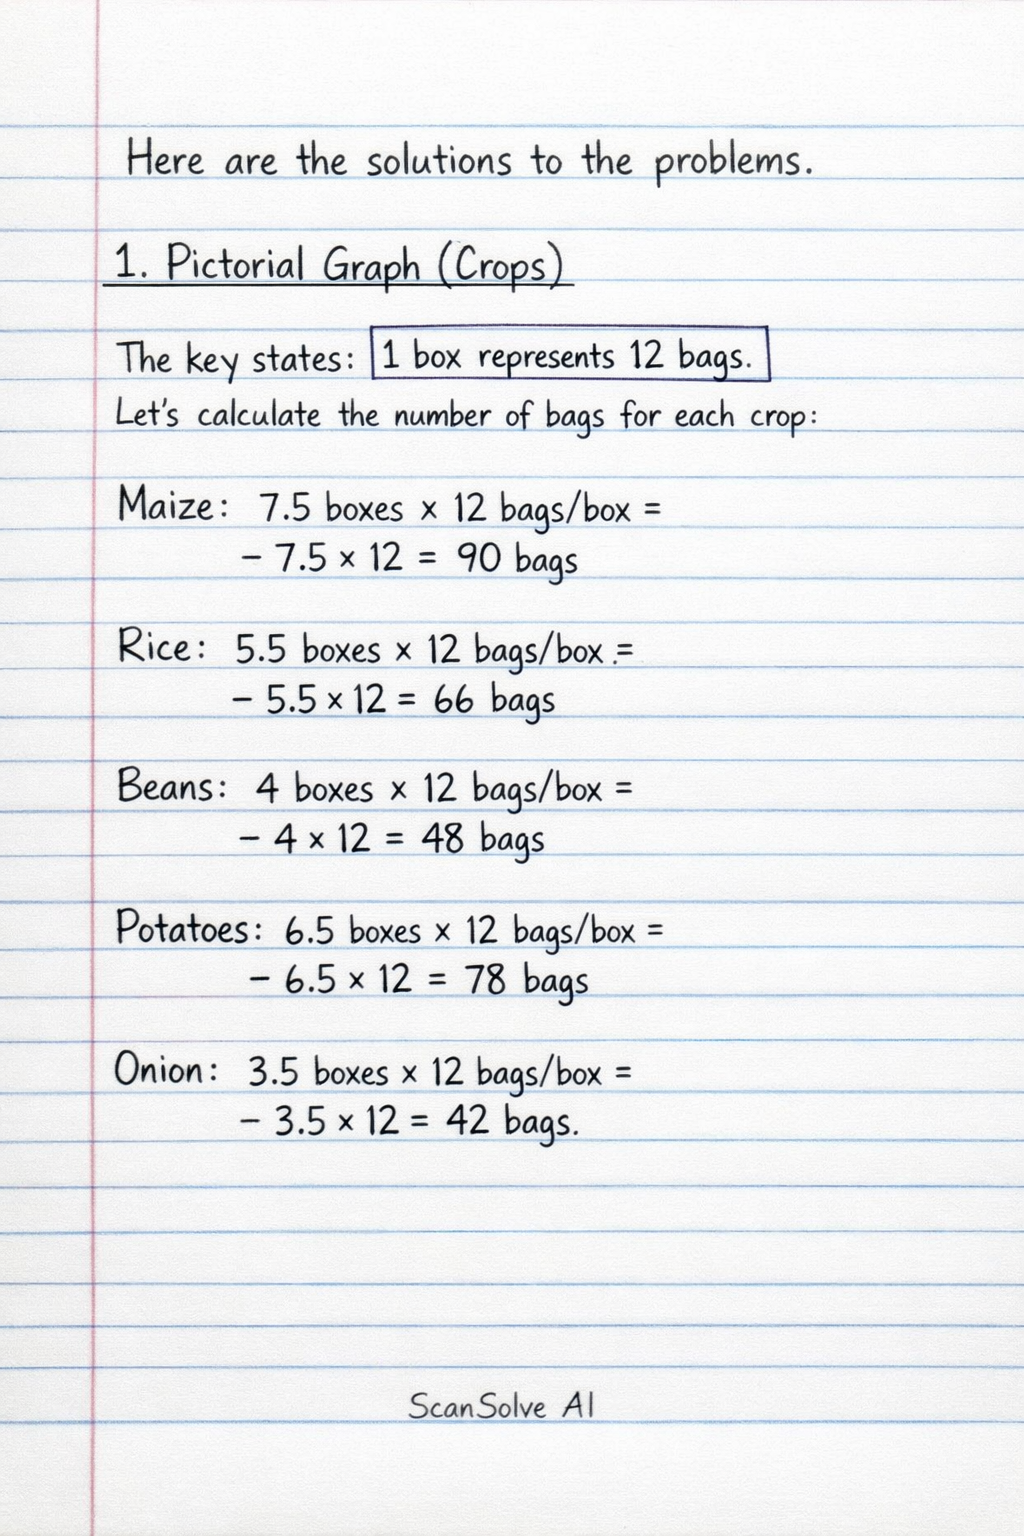 Here are the solutions to the problems.
1. Pictorial Graph (Crops)
The key states: 1 box represents 12 bags.
Let's calculate the number of bags for each crop:
Maize: 7.5 boxes × 12 bags/box =
– 7.5 × 12 = 90 bags
Rice: 5.5 boxes × 12 bags/box .=
– 5.5 × 12 = 66 bags
Beans: 4 boxes × 12 bags/box =
– 4 × 12 = 48 bags
Potatoes: 6.5 boxes × 12 bags/box =
– 6.5 × 12 = 78 bags
Onion: 3.5 boxes × 12 bags/box =
– 3.5 × 12 = 42 bags.
ScanSolve AI